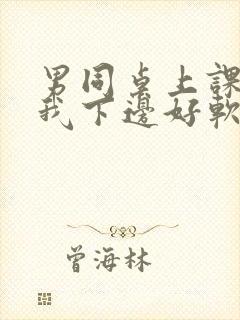 男同桌上課
我下邊好軟
曾海林